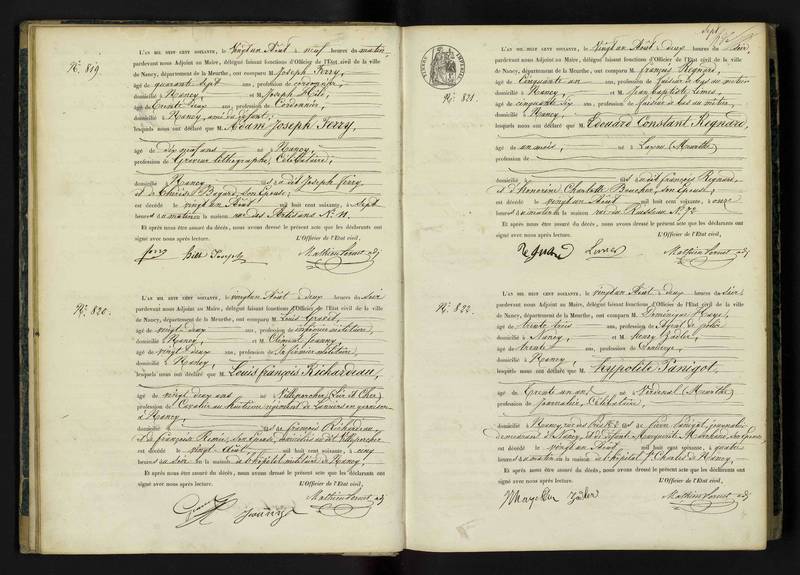 N.° 819
L'AN MIL HUIT CENT SOIXANTE, le vingt un Août à neuf heures du matin
pardevant nous Adjoint au Maire, délégué faisant fonctions d'Officier de l'Etat civil de la ville
de Nancy, département de la Meurthe, ont comparu M. Joseph Ferry,
âgé de quarante sept ans, profession de cordonnier,
domicilié à Nancy, et M. Joseph
âgé de trente deux ans, profession de Cordonnier,
domicilié à Nancy, du défunt;
lesquels nous ont déclaré que M. Adam Joseph Ferry,
âgé de dix neuf ans né à Nancy,
profession de Graveur lithographe, Célibataire,
domicilié à Nancy, et fils dudit Joseph Ferry
et de Thérèse Bogard, son épouse;
est décédé le vingt un Août mil huit cent soixante, à sept
heures du matin en la maison rue des Artisans N.° 11.
Et après nous être assuré du décès, nous avons dressé le présent acte que les déclarants ont
signé avec nous après lecture. L'Officier de l'Etat civil,
Ferry Joseph Mathieu adj
N.° 820.
L'AN MIL HUIT CENT SOIXANTE, le vingt un Août à deux heures du soir
pardevant nous Adjoint au Maire, délégué faisant fonctions d'Officier de l'Etat civil de la ville
de Nancy, département de la Meurthe, ont comparu M. Louis
âgé de vingt deux ans, profession de infirmier militaire,
domicilié à Nancy, et M. Clément Jeanny
âgé de vingt deux ans, profession de Infirmier militaire,
domicilié à Nancy,
lesquels nous ont déclaré que M. Louis François Richardeau,
âgé de vingt deux ans né à Villeporcher (Loir et Cher)
profession de Cavalier au huitième régiment de Lanciers en garnison
à Nancy,
domicilié à et fils de François Richardeau
et de Françoise son épouse, domiciliés audit Villeporcher
est décédé le vingt Août, mil huit cent soixante, à cinq
heures du soir en la maison de l'hôpital militaire de Nancy,
Et après nous être assuré du décès, nous avons dressé le présent acte que les déclarants ont
signé avec nous après lecture. L'Officier de l'Etat civil,
Jeanny Mathieu adj
N.° 821.
L'AN MIL HUIT CENT SOIXANTE, le vingt un Août à deux heures du soir,
pardevant nous Adjoint au Maire, délégué faisant fonctions d'Officier de l'Etat civil de la ville
de Nancy, département de la Meurthe, ont comparu M. François Regnard,
âgé de cinquante un ans, profession de faiseur de bas au métier
domicilié à Nancy, et M. Jean Baptiste
âgé de cinquante six ans, profession de faiseur de bas au métier,
domicilié à Nancy,
lesquels nous ont déclaré que M. Edouard Constant Regnard,
âgé de un mois, né à Laxou (Meurthe)
profession de
domicilié à et fils dudit François Regnard
et d'Honorine Charlotte Boucher, son épouse;
est décédé le vingt un Août mil huit cent soixante, à onze
heures du matin en la maison rue du Ruisseau N.° 72
Et après nous être assuré du décès, nous avons dressé le présent acte que les déclarants ont
signé avec nous après lecture. L'Officier de l'Etat civil,
Regnard Mathieu adj
N.° 822.
L'AN MIL HUIT CENT SOIXANTE, le vingt un Août à deux heures du soir,
pardevant nous Adjoint au Maire, délégué faisant fonctions d'Officier de l'Etat civil de la ville
de Nancy, département de la Meurthe, ont comparu M. Dominique
âgé de trente trois ans, profession de Agent de police
domicilié à Nancy, et M. Henry
âgé de trente ans, profession de
domicilié à Nancy,
lesquels nous ont déclaré que M. Hypolite Panigot,
âgé de trente un ans né à Verdenal (Meurthe)
profession de journalier, Célibataire,
domicilié à Nancy, rue des et fils de Panigot, journalier
demeurant à Nancy, et de défunte Marguerite Marchand, son épouse,
est décédé le vingt un Août mil huit cent soixante, à quatre
heures du matin en la maison de l'hôpital St. Charles de Nancy,
Et après nous être assuré du décès, nous avons dressé le présent acte que les déclarants ont
signé avec nous après lecture. L'Officier de l'Etat civil,
Mathieu adj